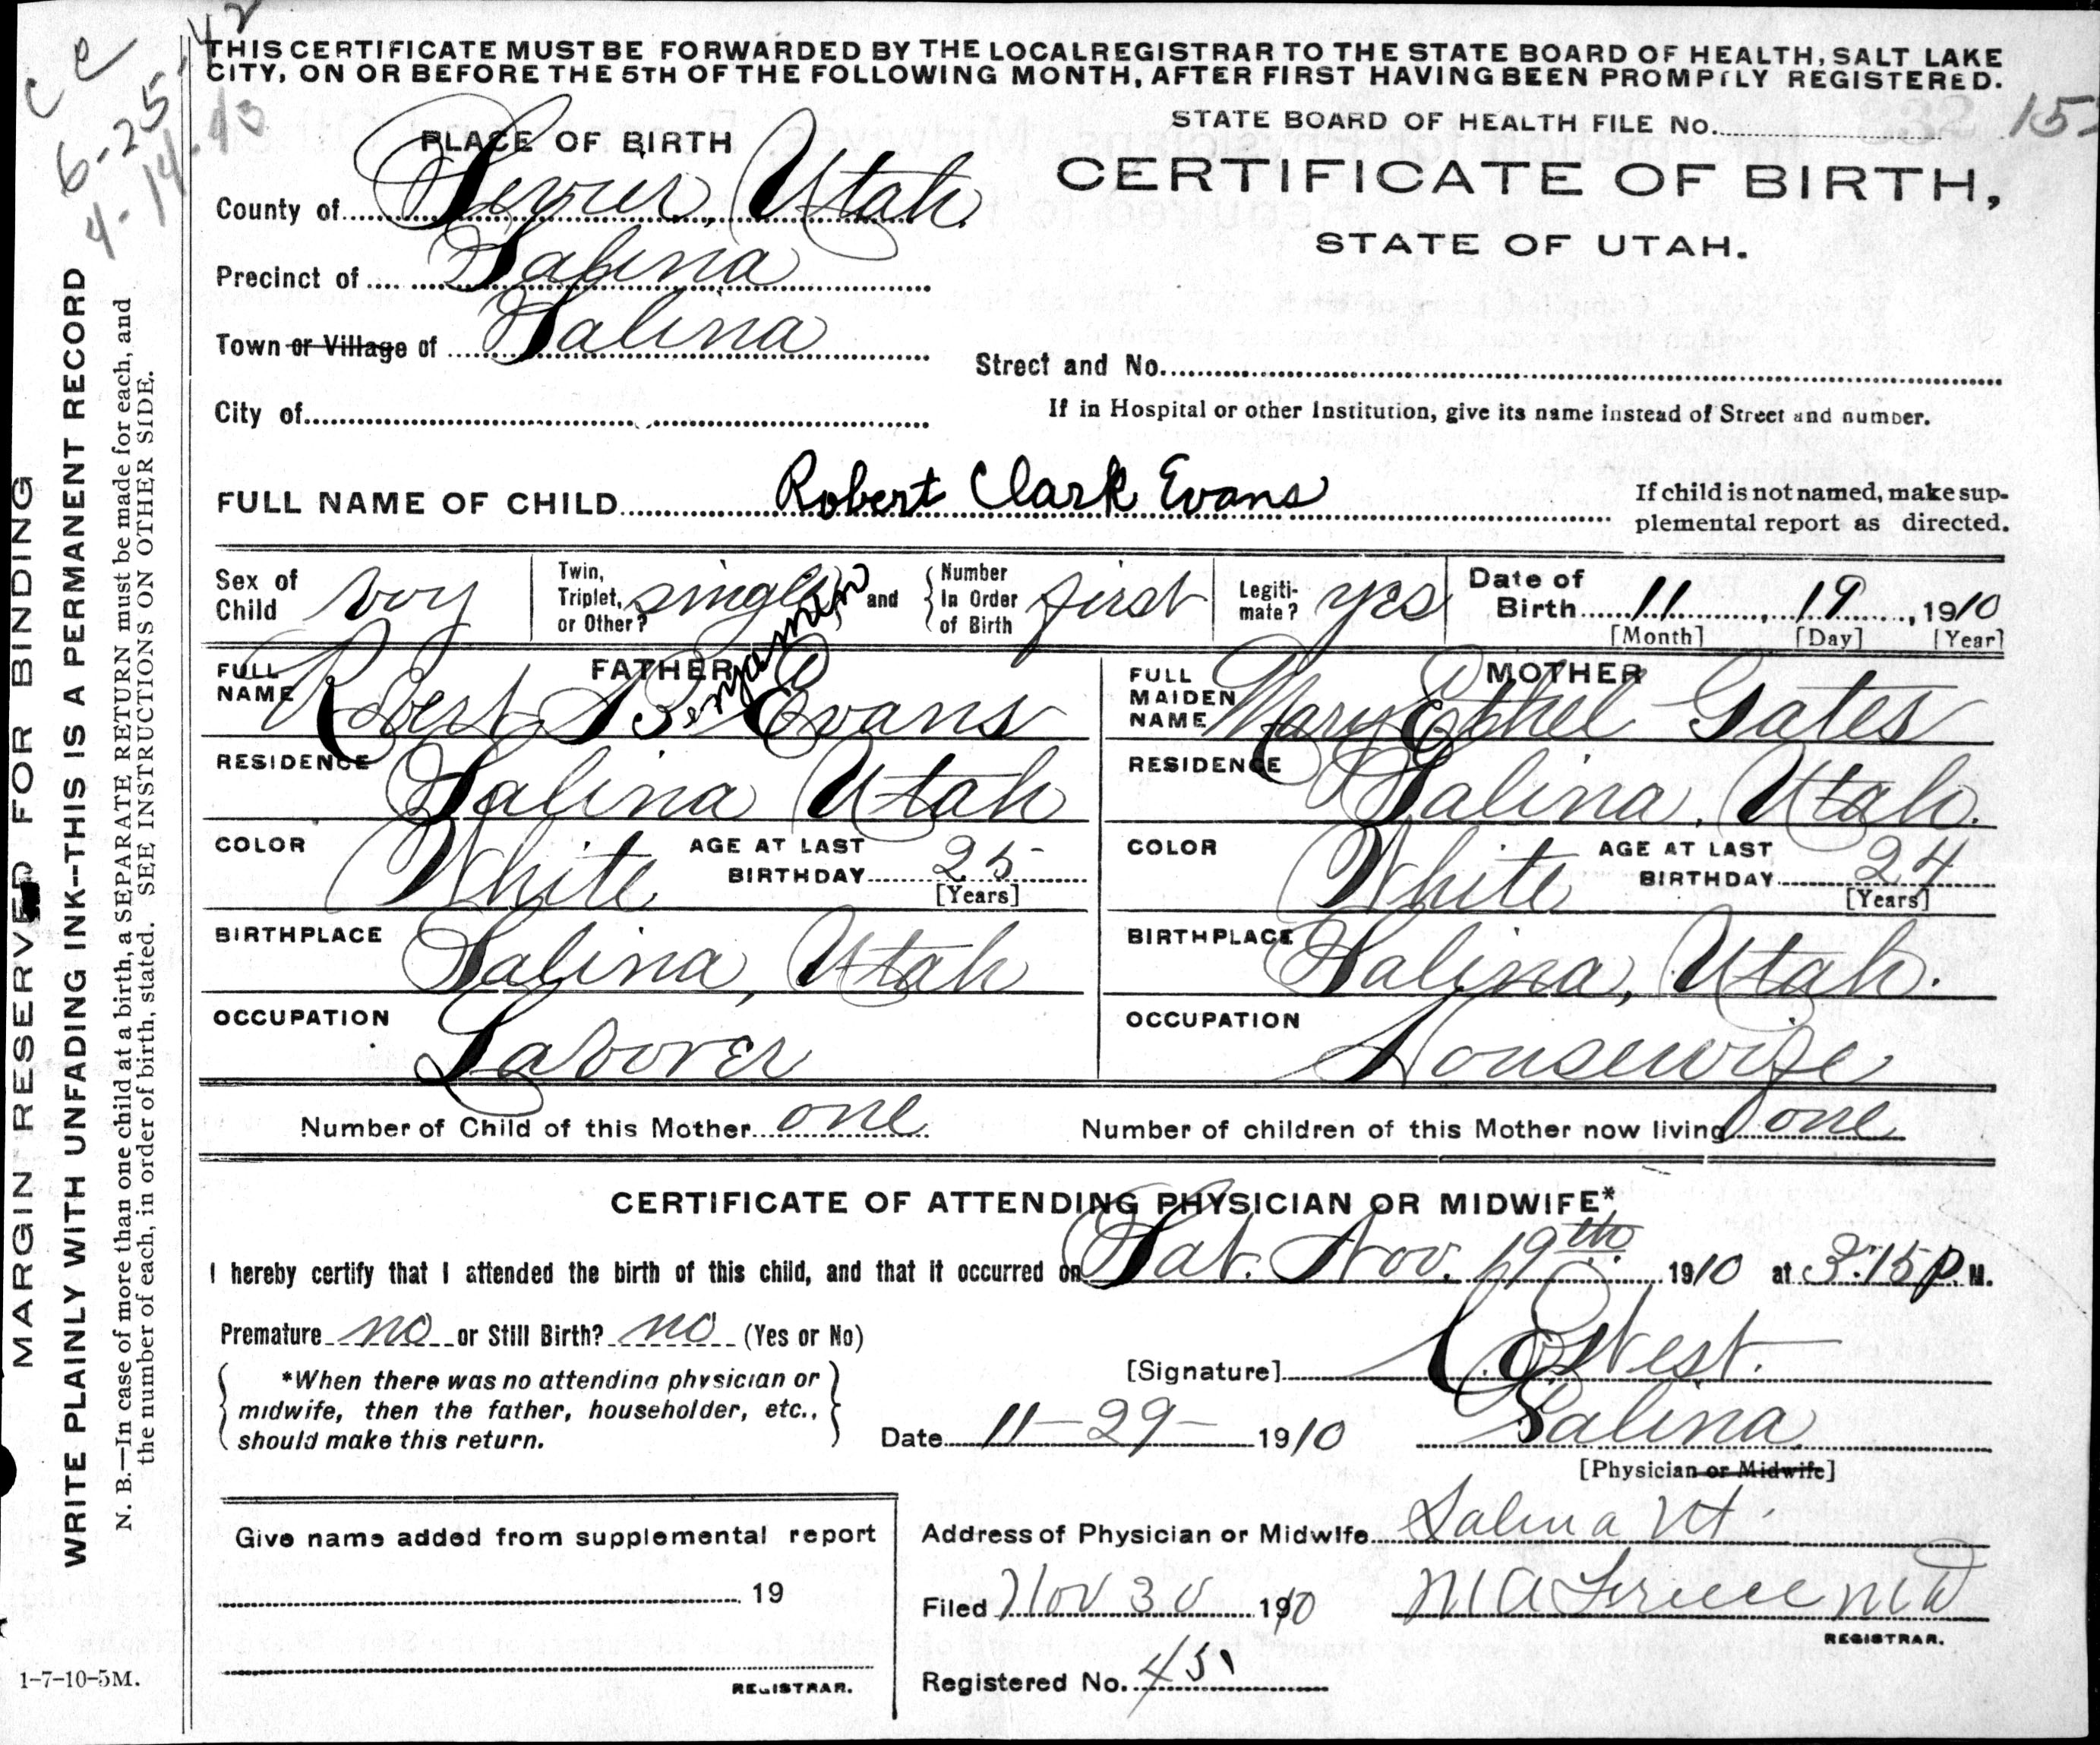 ce
6-25-'42
4-14-43
THIS CERTIFICATE MUST BE FORWARDED BY THE LOCAL REGISTRAR TO THE STATE BOARD OF HEALTH, SALT LAKE
CITY, ON OR BEFORE THE 5TH OF THE FOLLOWING MONTH, AFTER FIRST HAVING BEEN PROMPTLY REGISTERED.
STATE BOARD OF HEALTH FILE No. 15
PLACE OF BIRTH
CERTIFICATE OF BIRTH,
STATE OF UTAH.
County of Sevier, Utah.
Precinct of Salina
Town or Village of Salina
Street and No.
City of
If in Hospital or other Institution, give its name instead of Street and number.
FULL NAME OF CHILD Robert Clark Evans
If child is not named, make sup-
plemental report as directed.
Sex of Child boy
Twin, Triplet, or Other? single and
Number In Order of Birth first
Legiti-mate? yes
Date of Birth 11, 19, 1910
[Month] [Day] [Year]
FATHER
FULL NAME Robert Benjamin Evans
MOTHER
FULL MAIDEN NAME Mary Ethel Gates
RESIDENCE Salina Utah
RESIDENCE Salina, Utah.
COLOR White AGE AT LAST BIRTHDAY 25 [Years]
COLOR White AGE AT LAST BIRTHDAY 24 [Years]
BIRTHPLACE Salina, Utah
BIRTHPLACE Salina, Utah.
OCCUPATION Laborer
OCCUPATION Housewife
Number of Child of this Mother one
Number of children of this Mother now living one
CERTIFICATE OF ATTENDING PHYSICIAN OR MIDWIFE*
I hereby certify that I attended the birth of this child, and that it occurred on Sat. Nov. 19th 1910 at 3:15 P. M.
Premature no or Still Birth? no (Yes or No)
*When there was no attending physician or
midwife, then the father, householder, etc.,
should make this return.
[Signature] West.
Date 11-29- 1910
Salina
[Physician or Midwife]
Give name added from supplemental report
19
REGISTRAR.
Address of Physician or Midwife Salina Ut.
Filed Nov 30 1910
M D
REGISTRAR.
Registered No. 45
MARGIN RESERVED FOR BINDING
WRITE PLAINLY WITH UNFADING INK--THIS IS A PERMANENT RECORD
N. B.—In case of more than one child at a birth, a SEPARATE RETURN must be made for each, and
the number of each, in order of birth, stated. SEE INSTRUCTIONS ON OTHER SIDE.
1-7-10-5M.